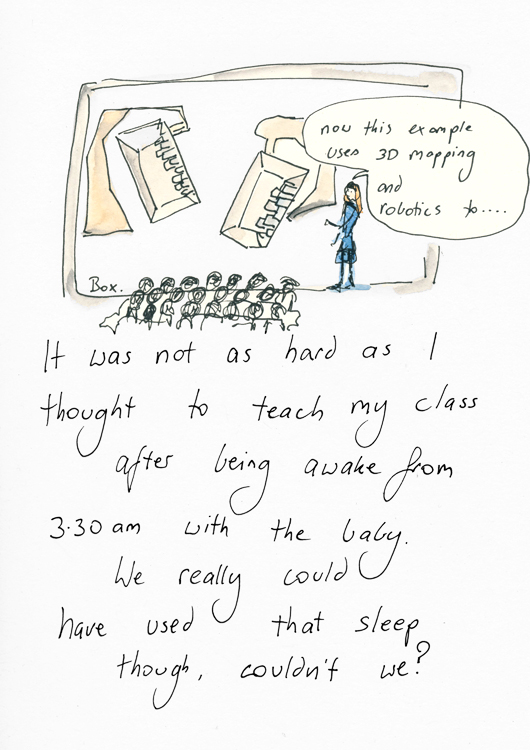 now this example
uses 3D mapping
and
robotics to....
Box.
It was not as hard as I
thought to teach my class
after being awake from
3.30 am with the baby.
We really could
have used that sleep
though, couldn't we?